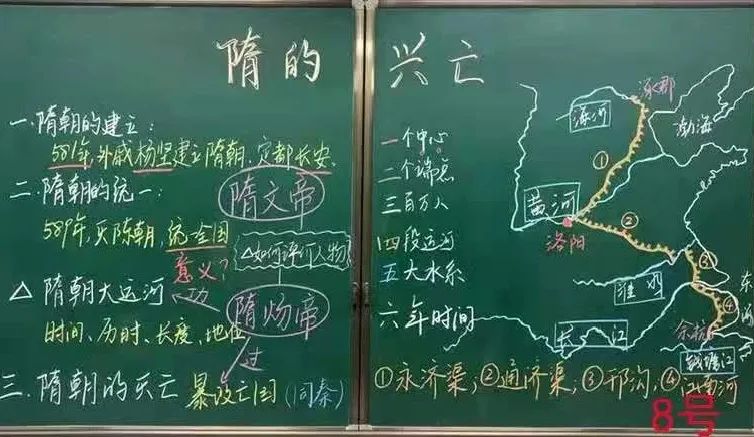 隋的兴亡
一.隋朝的建立:
581年,外戚杨坚建立隋朝,定都长安.
二.隋朝的统一:
隋文帝
589年,灭陈朝,统一全国
意义?
△如何评价人物
△隋朝大运河
功
隋炀帝
时间、历时、长度、地位
过
三.隋朝的灭亡 暴政亡国(同秦)
一个中心
二个端点
三百万人
四段运河
五大水系
六年时间
涿郡
海河
渤海
①
黄河
洛阳
②
③
淮河
东海
④
长江
余杭
钱塘江
①永济渠,②通济渠,③邗沟,④江南河
8号